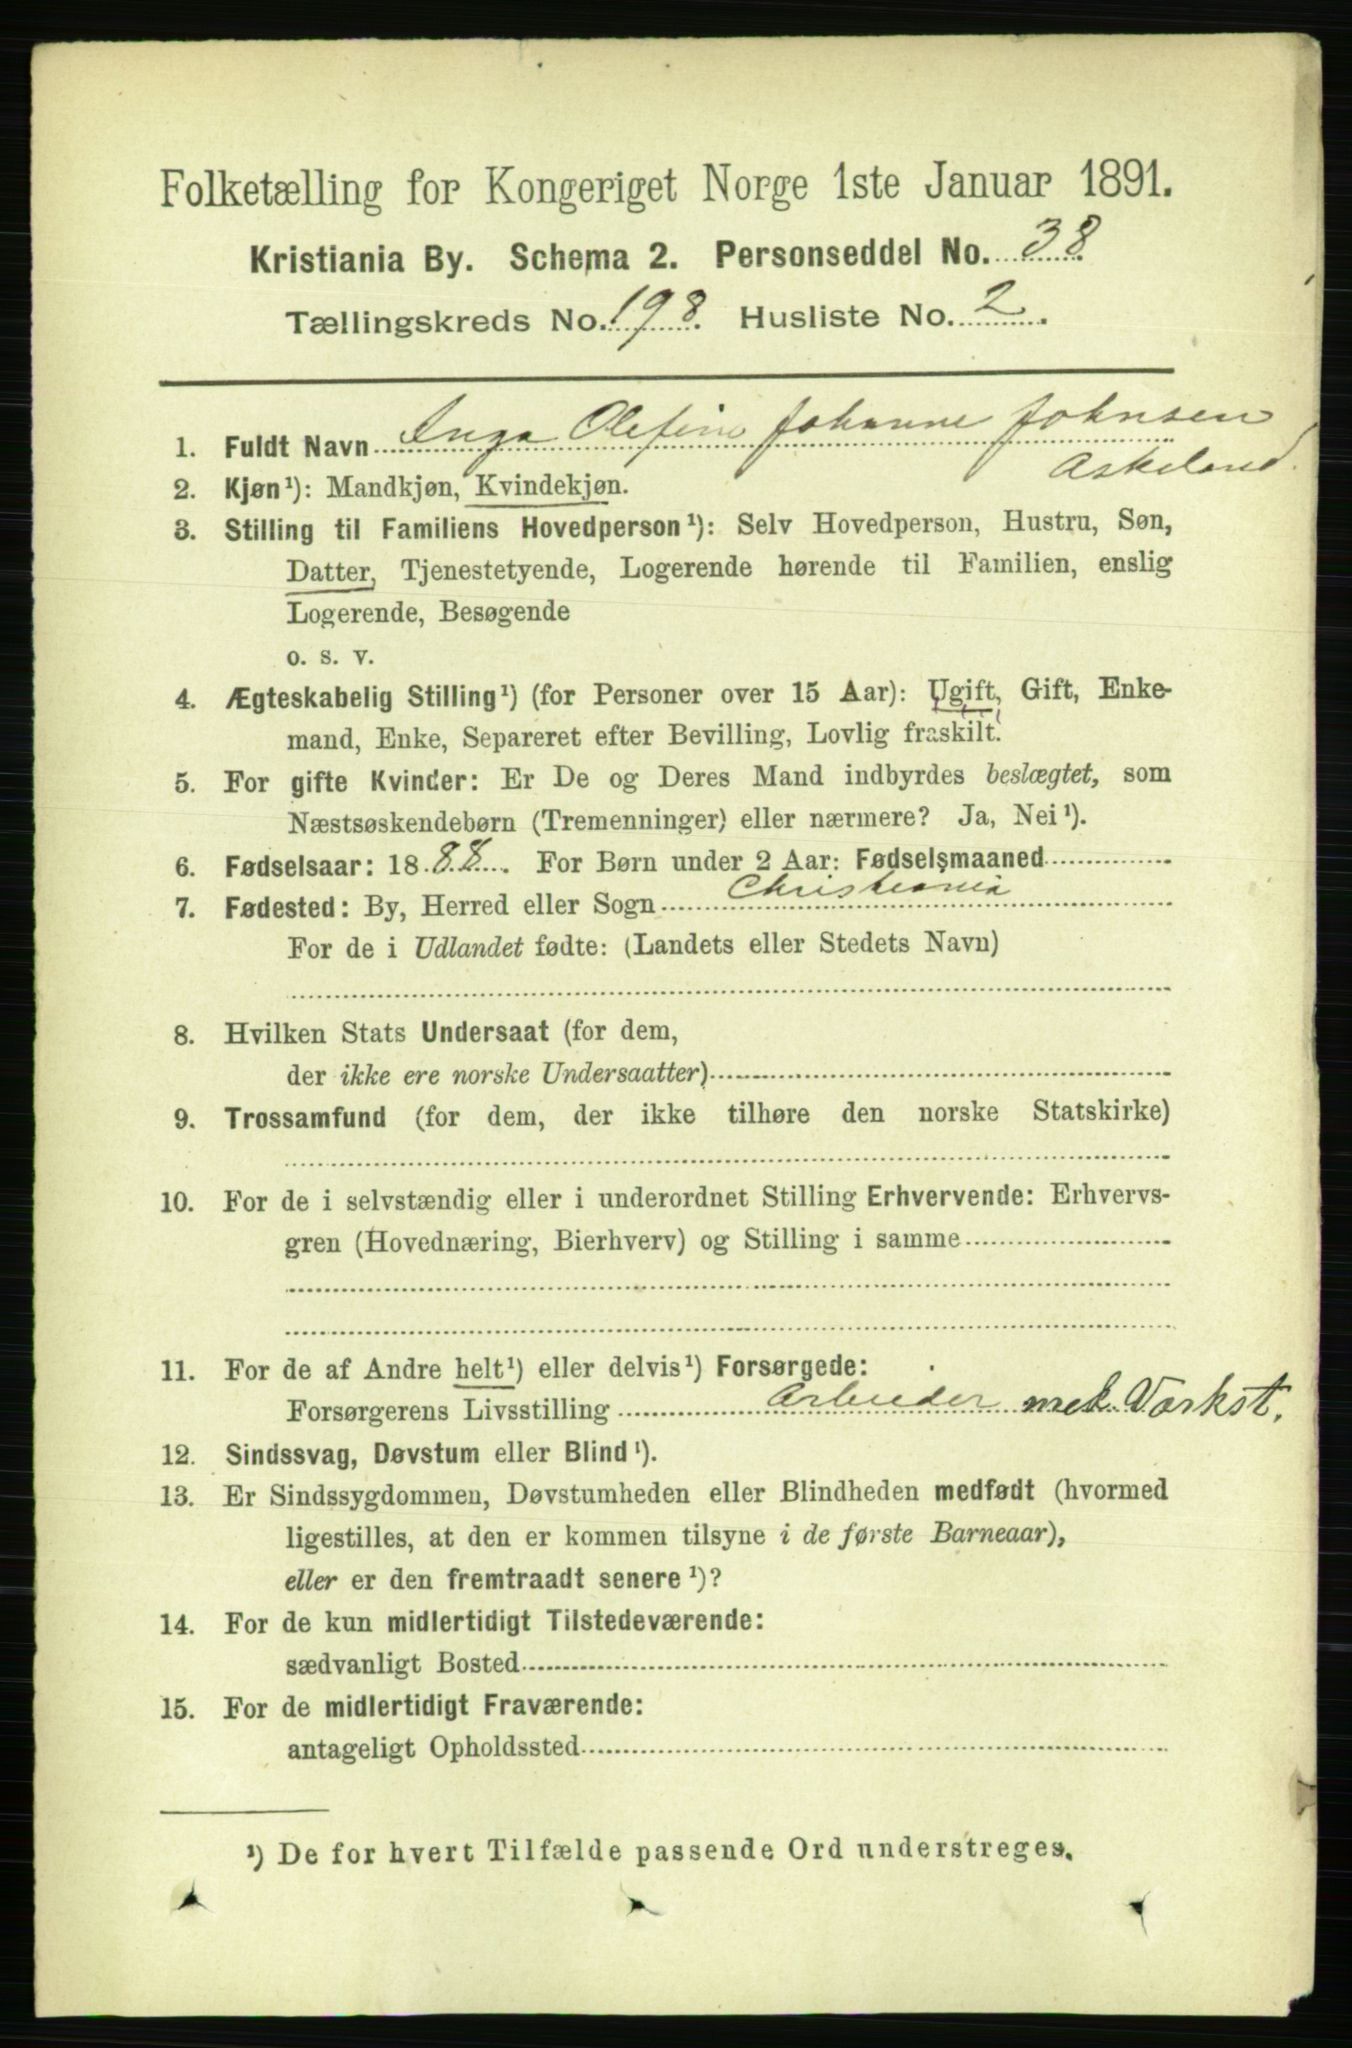 Folketælling for Kongeriget Norge 1ste Januar 1891.
Kristiania By. Schema 2. Personseddel No. 38
Tællingskreds No. 198. Husliste No. 2.
1. Fuldt Navn Inga Olefine Johanne Johnsen
Askeland.
2. Kjøn¹): Mandkjøn, Kvindekjøn.
3. Stilling til Familiens Hovedperson¹): Selv Hovedperson, Hustru, Søn,
Datter, Tjenestetyende, Logerende hørende til Familien, enslig
Logerende, Besøgende
o. s. v.
4. Ægteskabelig Stilling¹) (for Personer over 15 Aar): Ugift, Gift, Enke-
mand, Enke, Separeret efter Bevilling, Lovlig fraskilt.
5. For gifte Kvinder: Er De og Deres Mand indbyrdes beslægtet, som
Næstsøskendebørn (Tremenninger) eller nærmere? Ja, Nei¹).
6. Fødselsaar: 1888. For Børn under 2 Aar: Fødselsmaaned
7. Fødested: By, Herred eller Sogn Christiania
For de i Udlandet fødte: (Landets eller Stedets Navn)
8. Hvilken Stats Undersaat (for dem,
der ikke ere norske Undersaatter)
9. Trossamfund (for dem, der ikke tilhøre den norske Statskirke)
10. For de i selvstændig eller i underordnet Stilling Erhvervende: Erhvervs-
gren (Hovednæring, Bierhverv) og Stilling i samme
11. For de af Andre helt¹) eller delvis¹) Forsørgede:
Forsørgerens Livsstilling Arbeider mek. Værkst.
12. Sindssvag, Døvstum eller Blind¹).
13. Er Sindssygdommen, Døvstumheden eller Blindheden medfødt (hvormed
ligestilles, at den er kommen tilsyne i de første Barneaar),
eller er den fremtraadt senere¹)?
14. For de kun midlertidigt Tilstedeværende:
sædvanligt Bosted
15. For de midlertidigt Fraværende:
antageligt Opholdssted
¹) De for hvert Tilfælde passende Ord understreges.